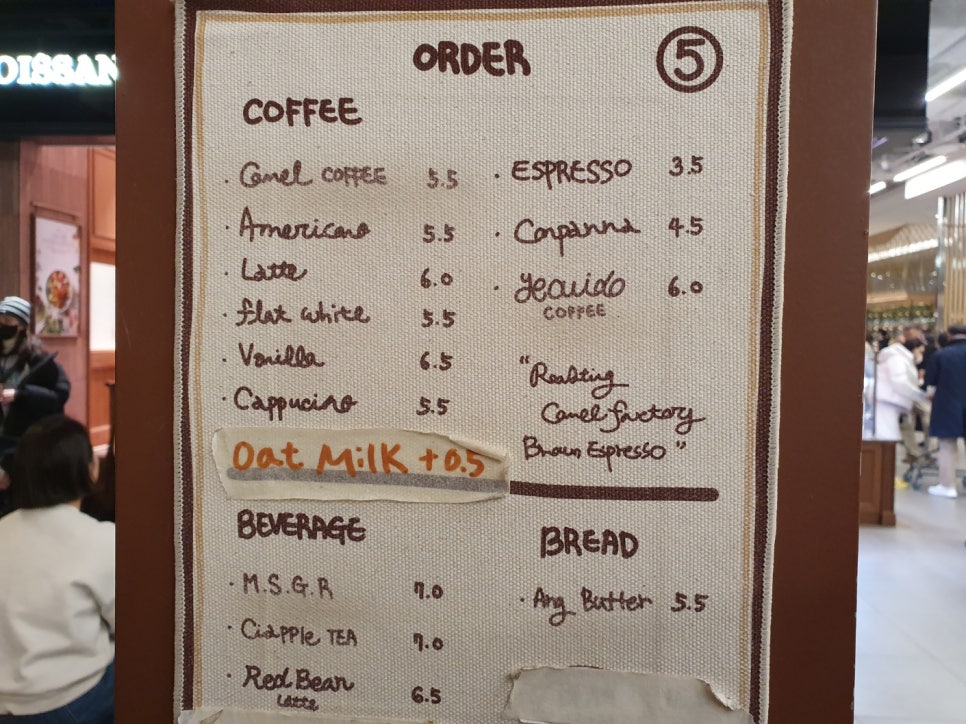 OISSAN
ORDER
5
COFFEE
Camel COFFEE 5.5
Americano 5.5
Latte 6.0
flat white 5.5
Vanilla 6.5
Cappucino 5.5
Oat Milk +0.5
ESPRESSO 3.5
Conpanna 4.5
yeouido 6.0
COFFEE
"Roasting
Camel factory
Braun Espresso"
BEVERAGE
M.S.G.R 7.0
Ciapple TEA 7.0
Red Bean 6.5
Latte
BREAD
Ang Butter 5.5